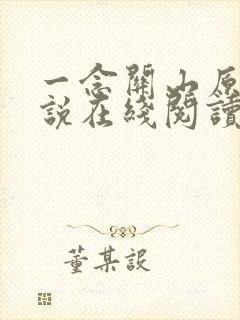 一念關山原
說在綫閱讀
董某設